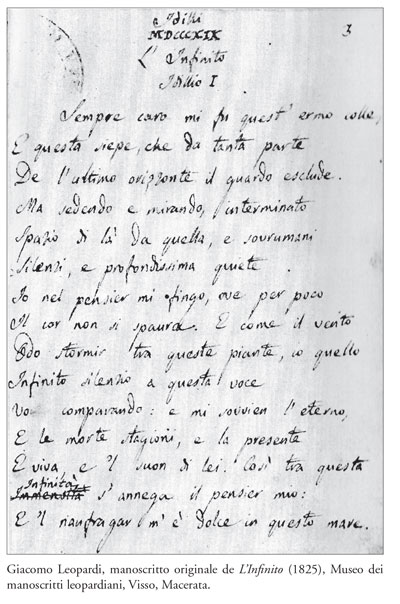 Idilli
MDCCCXIX
3
L' Infinito
Idillio I
Sempre caro mi fu quest' ermo colle,
E questa siepe, che da tanta parte
De l'ultimo orizzonte il guardo esclude.
Ma sedendo e mirando, l'interminato
Spazio di là da quella, e sovrumani
Silenzi, e profondissima quiete
Io nel pensier mi fingo, ove per poco
Il cor non si spaura. E come il vento
Odo stormir tra queste piante, io quello
Infinito silenzio a questa voce
Vo comparando: e mi sovvien l'eterno,
E le morte stagioni, e la presente
E viva, e 'l suon di lei. Così tra questa
Infinità
Immensità s' annega il pensier mio:
E 'l naufragar m' è dolce in questo mare.
Giacomo Leopardi, manoscritto originale de L'Infinito (1825), Museo dei
manoscritti leopardiani, Visso, Macerata.